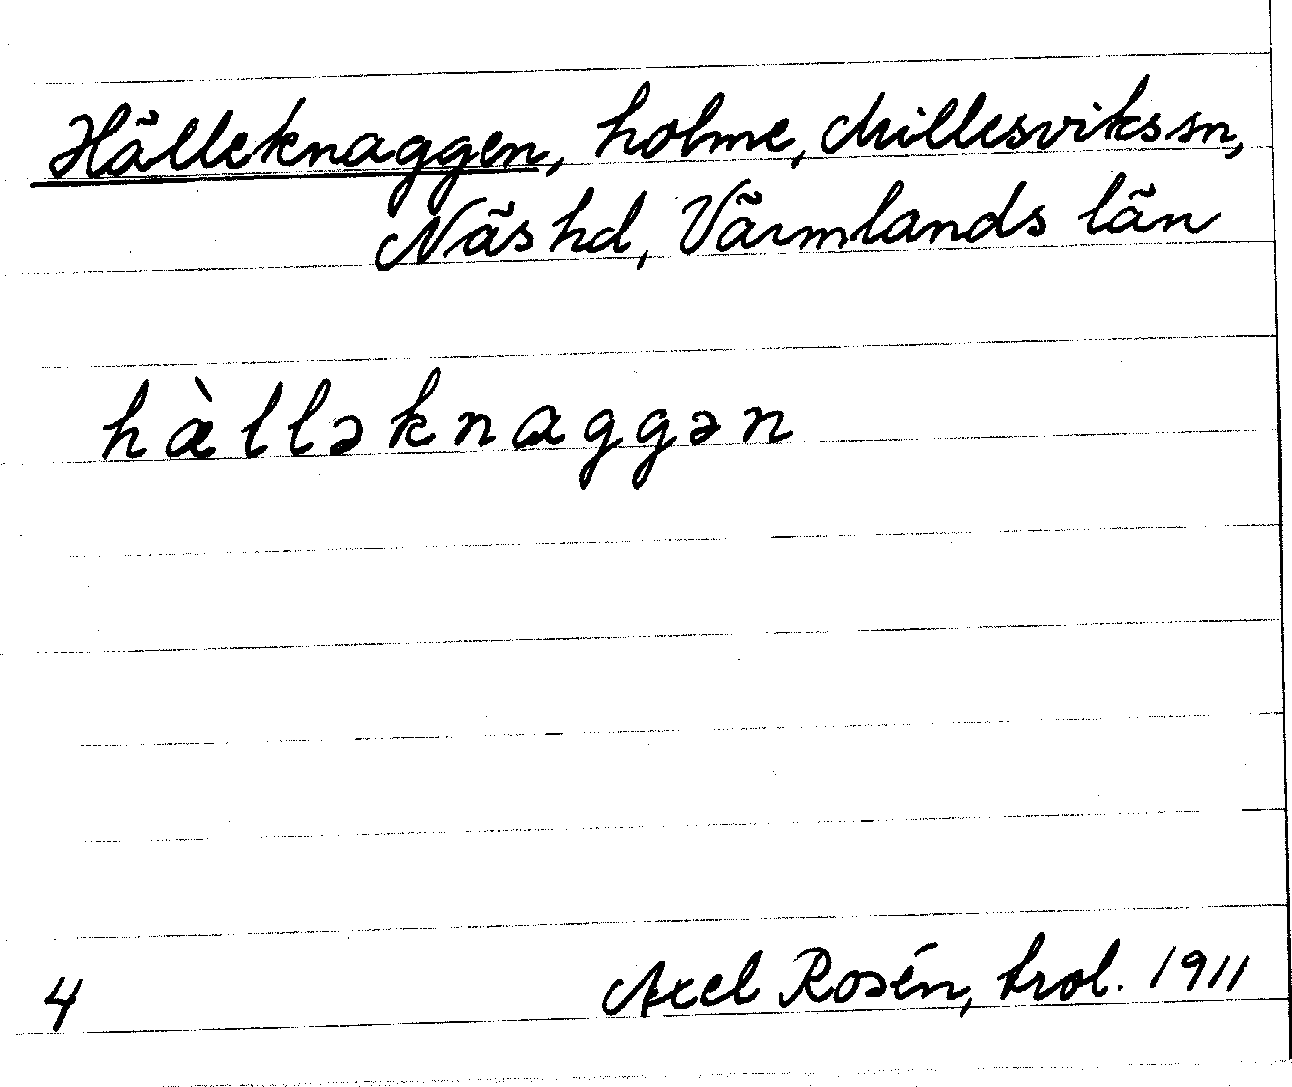 Hälleknaggen, holme, Millesvikssn,
Näs hd, Värmlands län
hæ̀lləknaggən
4
Axel Rosén, trol. 1911